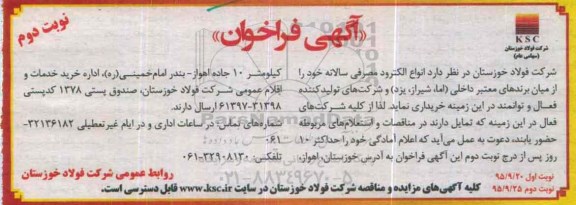 نوبت دوم
«آگهی فراخوان»
KSC
شرکت فولاد خوزستان
(سهامی عام)
شرکت فولاد خوزستان در نظر دارد انواع الکترود مصرفی سالانه خود را
از میان برندهای معتبر داخلی (اما، شیراز، یزد) و شرکت‌های تولیدکننده
فعال و توانمند در این زمینه خریداری نماید. لذا از کلیه شرکت‌های
فعال در این زمینه که تمایل دارند در مناقصات و استعلام‌های مربوطه
حضور یابند، دعوت به عمل می‌آید که اعلام آمادگی خود را حداکثر ۱۰
روز پس از درج نوبت دوم این آگهی فراخوان به آدرس: خوزستان، اهواز،
کیلومتر ۱۰ جاده اهواز- بندر امام‌خمینی(ره)، اداره خرید خدمات و
اقلام عمومی شرکت فولاد خوزستان، صندوق پستی ۱۳۷۸ کدپستی
۳۱۳۹۸-۶۱۳۹۷ ارسال دارند.
شماره‌های تماس: در ساعات اداری و در ایام غیرتعطیلی ۳۲۱۳۶۱۸۲-
۰۶۱
تلفکس: ۳۲۹۰۸۱۳۰-۰۶۱
نوبت اول ۹۵/۹/۲۰
نوبت دوم ۹۵/۹/۲۵
روابط عمومی شرکت فولاد خوزستان
کلیه آگهی‌های مزایده و مناقصه شرکت فولاد خوزستان در سایت www.ksc.ir قابل دسترسی است.
۰۲۱-۸۸۳۴۹۶۷۰-۵